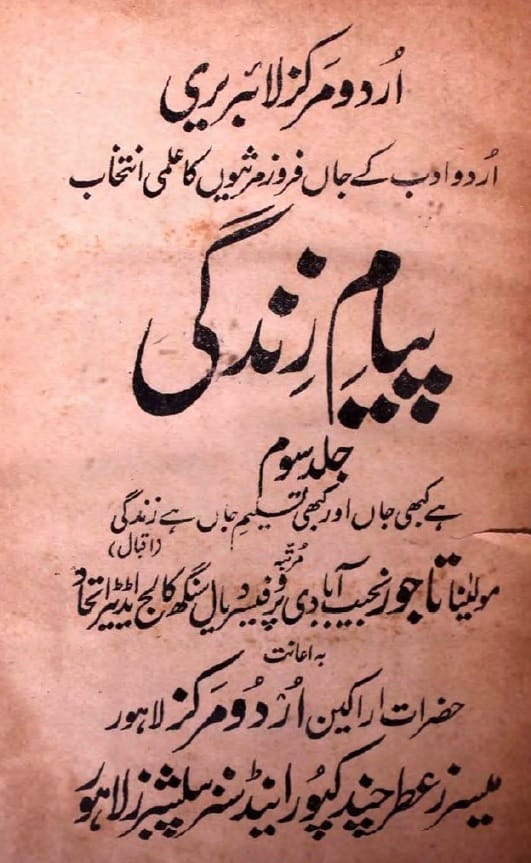 اُردو مرکز لائبریری
اُردو ادب کے جاں فروز مرثیوں کا علمی انتخاب
پیامِ زِندگی
جلد سوم
ہے کبھی جاں اور کبھی تسلیمِ جاں ہے زندگی
(اقبال)
مُرتّبہ
مولیٰنا تاجور نجیب آبادی پروفیسر دیال سنگھ کالج اڈیٹر اتحاد
بہ اعانت
حضرات اراکین اُرْدُو مَرکز لاہور
میسرز عطر چند کپُور اینڈ سنز پبلشرز لاہور